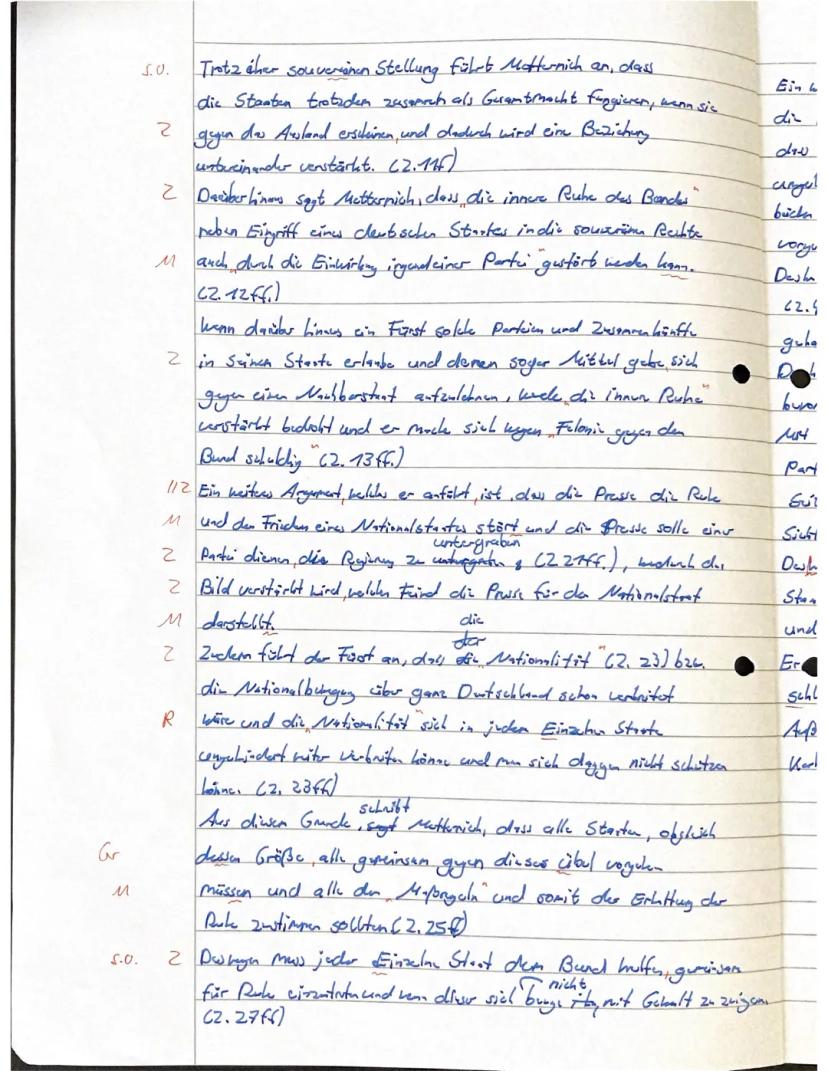 s.o. Trotz ihrer souveränen Stellung führt Metternich an, dass
die Staaten trotzdem zusammen als Gesamtmacht fungieren, wenn sie
Z gegen das Ausland erscheinen, und dadurch wird eine Beziehung
untereinander verstärkt. (Z.11f)
Z Darüber hinaus sagt Metternich, dass „die innere Ruhe des Bundes"
neben Eingriff eines deutschen Staates in die souveränen Rechte
M auch „durch die Einwirkung irgendeiner Partei" gestört werden kann.
(Z.12ff.)
Wenn darüber hinaus ein Fürst solche Parteien und Zusammenkünfte
Z in seinem Staate erlaube und denen sogar Mittel gebe, sich
gegen einen Nachbarstaat aufzulehnen, werde „die innere Ruhe"
verstärkt bedroht und er mache sich wegen „Felonie gegen den
Bund schuldig" (Z.13ff.)
11Z Ein weiteres Argument, welches er anführt, ist, dass die Presse die Ruhe
M und den Frieden eines Nationalstaates stört und die Presse solle einer
untergraben
Z Partei dienen, die Regierung zu (Z.21ff.), wodurch das
Z Bild verstärkt wird, welchen Feind die Presse für den Nationalstaat
M darstellt.
die
Z Zudem führt der Fürst an, dass „Nationalität" (Z.23) bzw.
die Nationalbewegung über ganz Deutschland schon verbreitet
R wäre und die „Nationalität" sich in jedem Einzelnen Staate
ungehindert weiter verbreiten könne und man sich dagegen nicht schützen
könne. (Z.23ff)
schreibt
Aus diesem Grunde, sagt Metternich, dass alle Staaten, obgleich
Gr dessen Größe, alle gemeinsam gegen dieses Übel vorgehen
M müssen und alle den „Maßregeln" und somit der Erhaltung der
Ruhe zustimmen sollten (Z.25ff)
s.o. Z Deswegen muss jeder Einzelne Staat dem Bund helfen, gemeinsam
nicht
für Ruhe einzutreten und wenn dieser sich mit Gewalt zu zwingen.
(Z.27ff)
Ein
die
das
Desh
(Z.
Mit
Part
Sicht
Desh
Staa
und
Er
schl
Auß